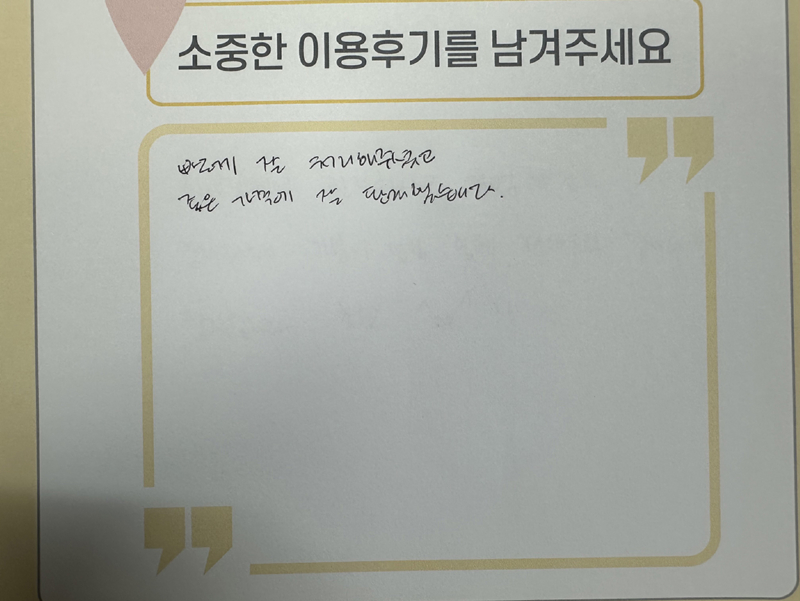 소중한 이용후기를 남겨주세요
빠르게 잘 처리해주셨고
좋은 가격에 잘 판매했습니다.